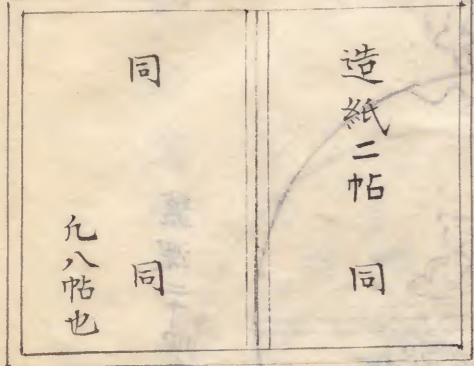 造紙二帖 同
同 同
凢八帖也